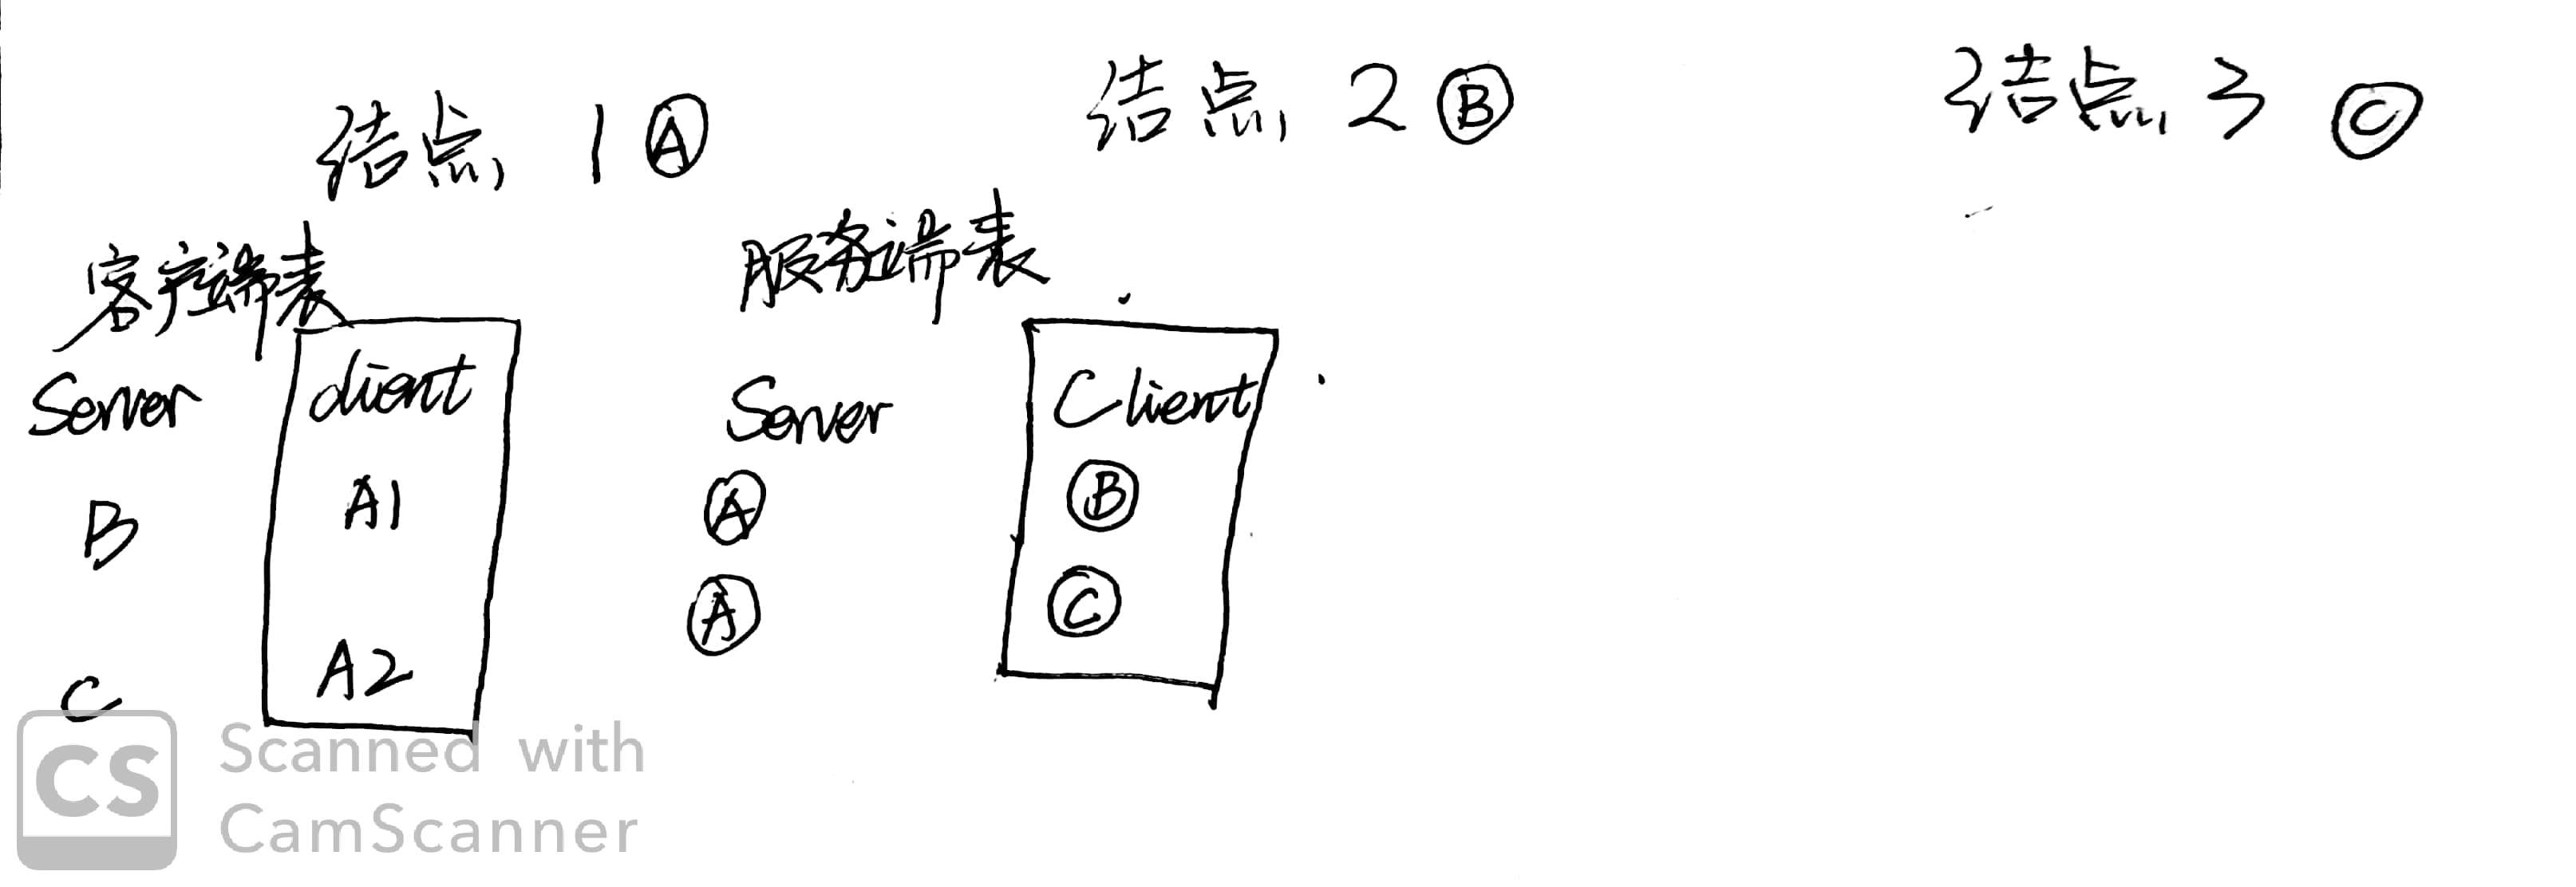 结点 1 Ⓐ
结点 2 Ⓑ
结点 3 Ⓒ
客户端表
Server client
B A1
C A2
服务端表
Server Client
Ⓐ Ⓑ
Ⓐ Ⓒ
CS Scanned with
CamScanner